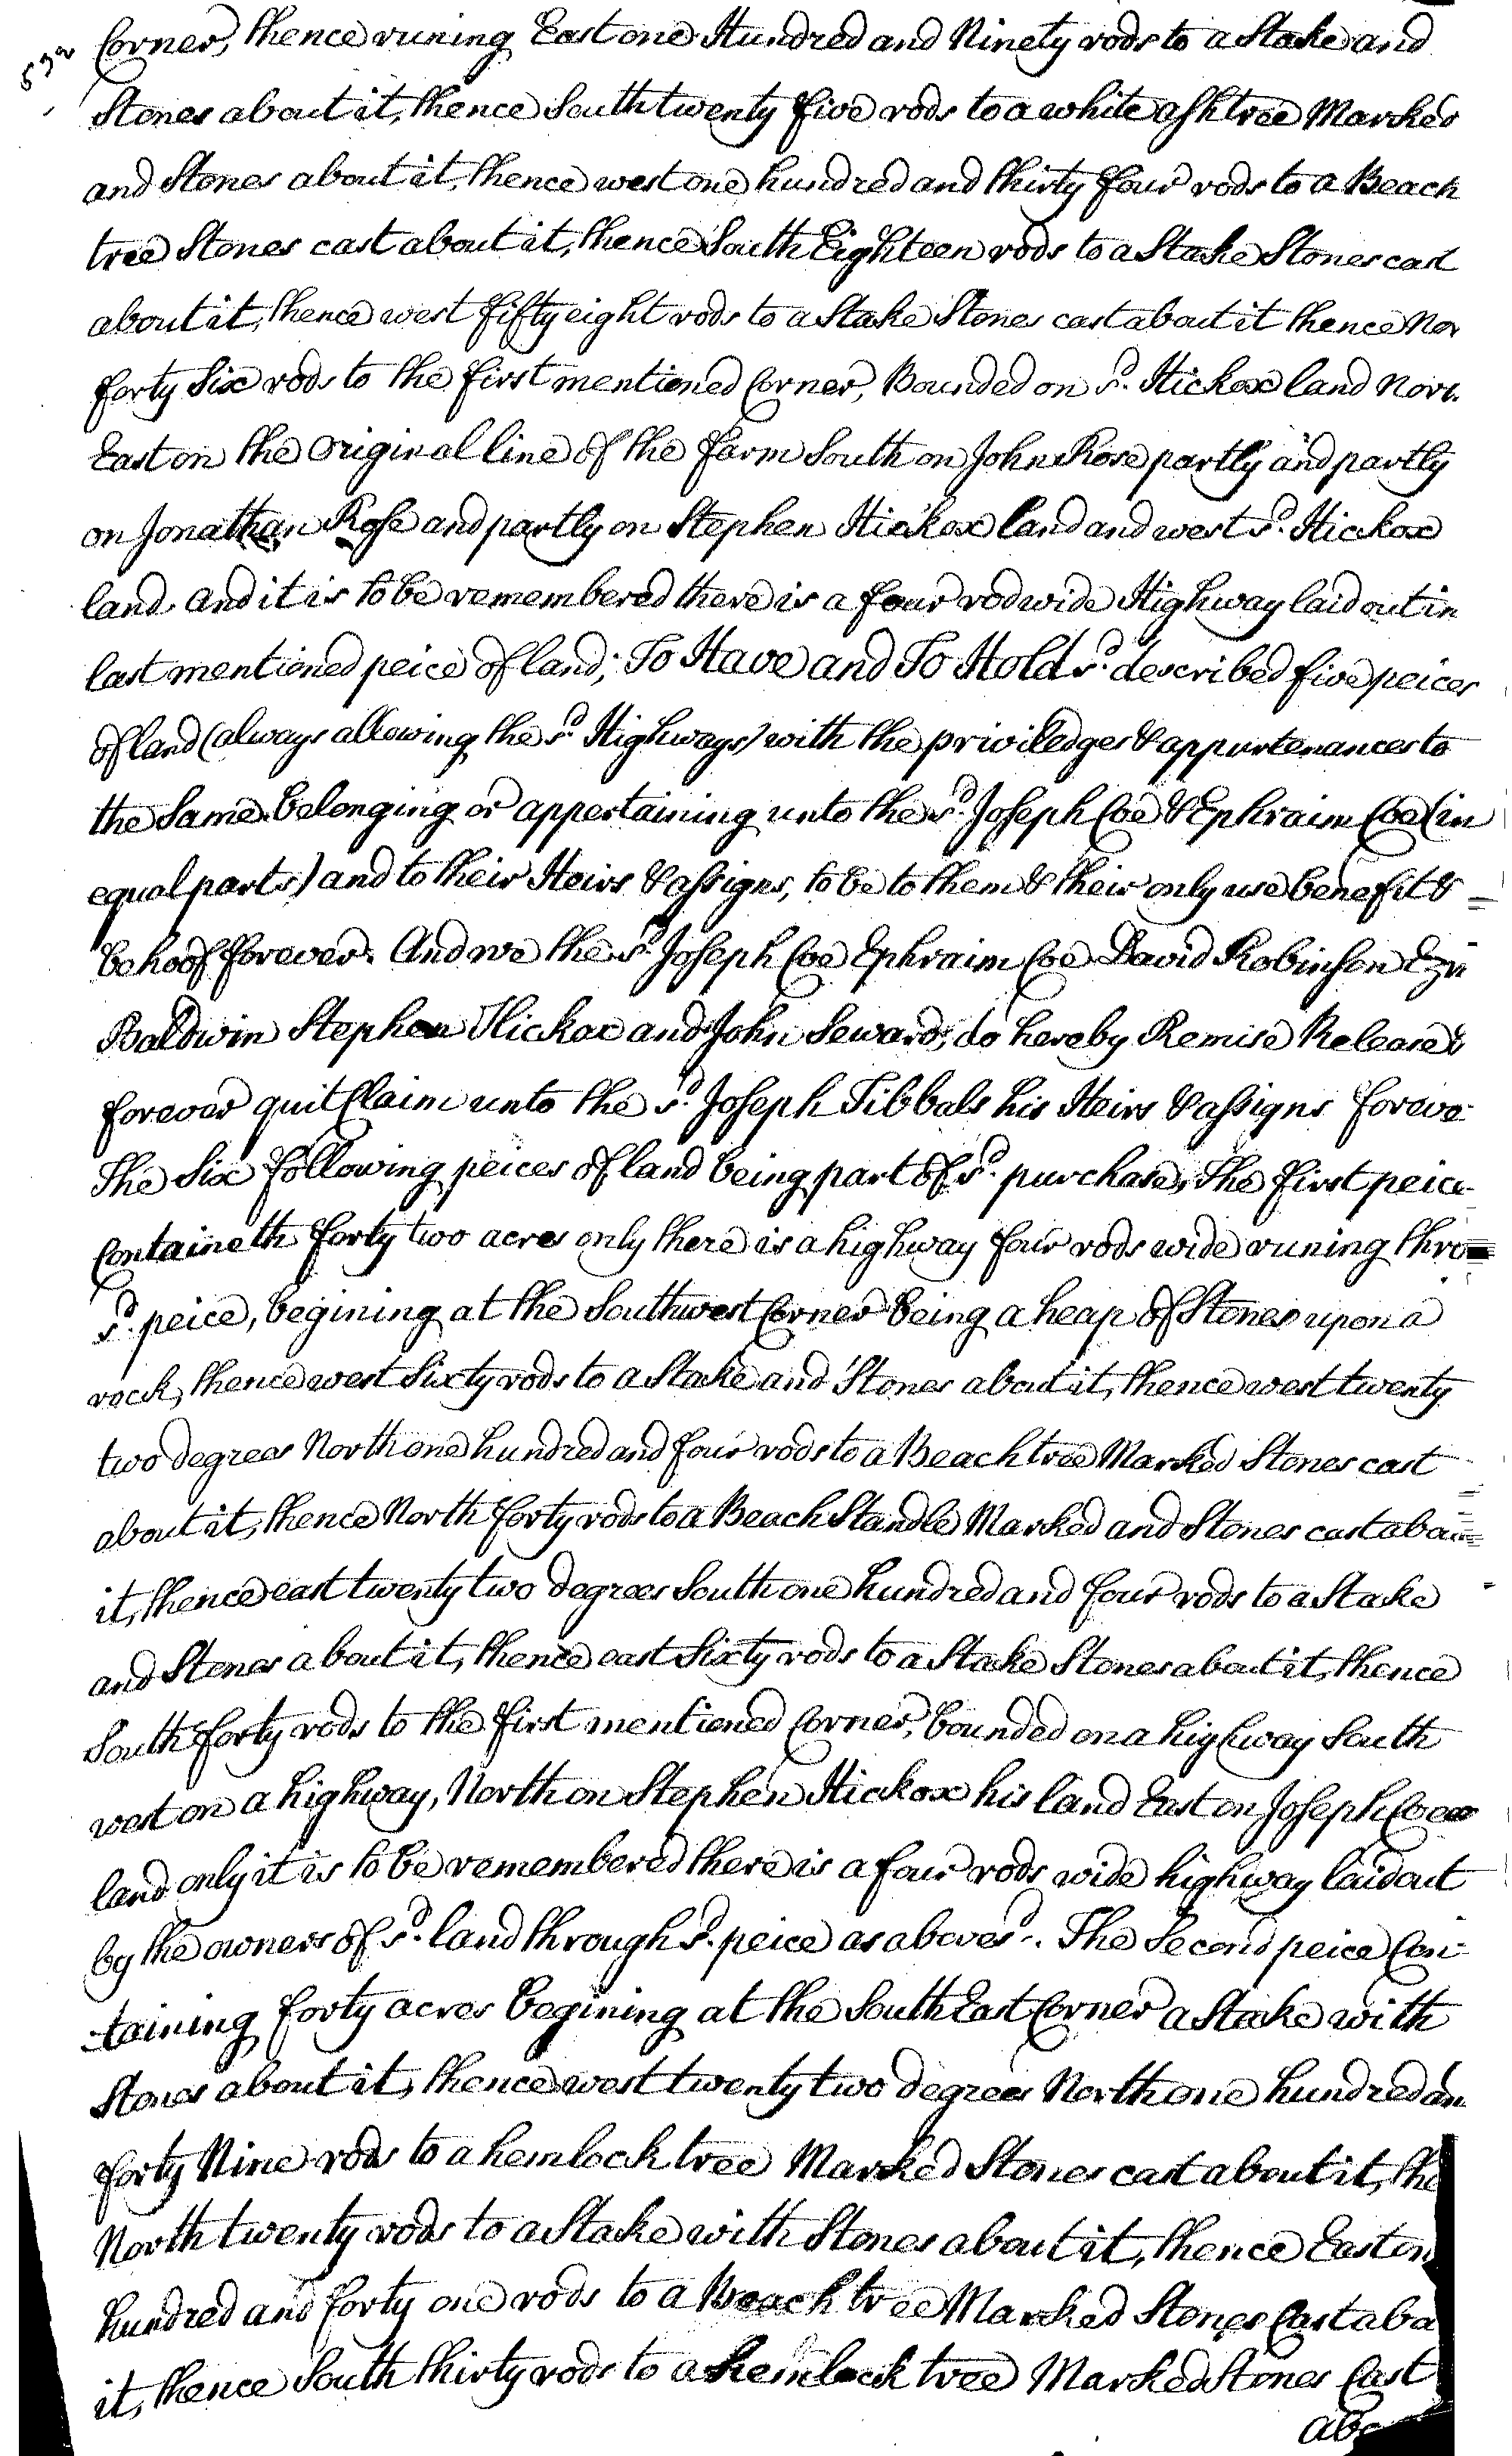 532
Corner, thence runing East one Hundred and Ninety rods to a Stake and
Stones about it, thence South twenty five rods to a white ash tree Marked
and Stones about it, thence west one hundred and thirty four rods to a Beach
tree Stones cast about it, thence South Eighteen rods to a Stake Stones cast
about it, thence west fifty eight rods to a Stake Stones cast about it thence Nor
forty Six rods to the first mentioned Corner, Bounded on sd. Hickox land Nor
East on the Original line of the farm South on John Rose partly and partly
on Jonathan Rose and partly on Stephen Hickox land and west sd. Hickox
land and it is to be remembered there is a four rod wide Highway laid out in
last mentioned peice of land; To Have and To Hold sd. described five peices
of land (always allowing the sd. Highways) with the priviledges & appurtenances to
the Same belonging or appertaining unto the sd. Joseph Coe & Ephraim Coe (in
equal parts) and to their Heirs & assigns, to be to them & their only use benefit &
behoof forever. And we the sd. Joseph Coe Ephraim Coe David Robinson Ezra
Baldwin Stephen Hickox and John Seward, do hereby Remise Release &
forever quit Claim unto the sd. Joseph Tibbals his Heirs & assigns foreve
The Six following peices of land being part of sd. purchase, The first peice
Containeth forty two acres only there is a highway four rods wide runing thro
sd. peice, begining at the Southwest Corner being a heap of Stones upon a
rock, thence west Sixty rods to a Stake and Stones about it, thence west twenty
two degrees North one hundred and four rods to a Beach tree Marked Stones cast
about it, thence North forty rods to a Beach Standle Marked and Stones cast abou
it, thence east twenty two degrees South one hundred and four rods to a Stake
and Stones about it, thence east Sixty rods to a Stake Stones about it, thence
South forty rods to the first mentioned Corner, bounded on a highway South
west on a highway, North on Stephen Hickox his land East on Joseph Coes
land only it is to be remembered there is a four rods wide highway laid out
by the owners of sd. land through sd. peice as abovesd. The Second peice Con-
-taining forty acres Begining at the South East Corner a Stake with
Stones about it, thence west twenty two degrees North one hundred an
forty Nine rods to a hemlock tree Marked Stones cast about it, the
North twenty rods to a Stake with Stones about it, thence East on
hundred and forty one rods to a Beach tree Marked Stones Cast abo
it, thence South thirty rods to a hemlock tree Marked Stones Cast
abo